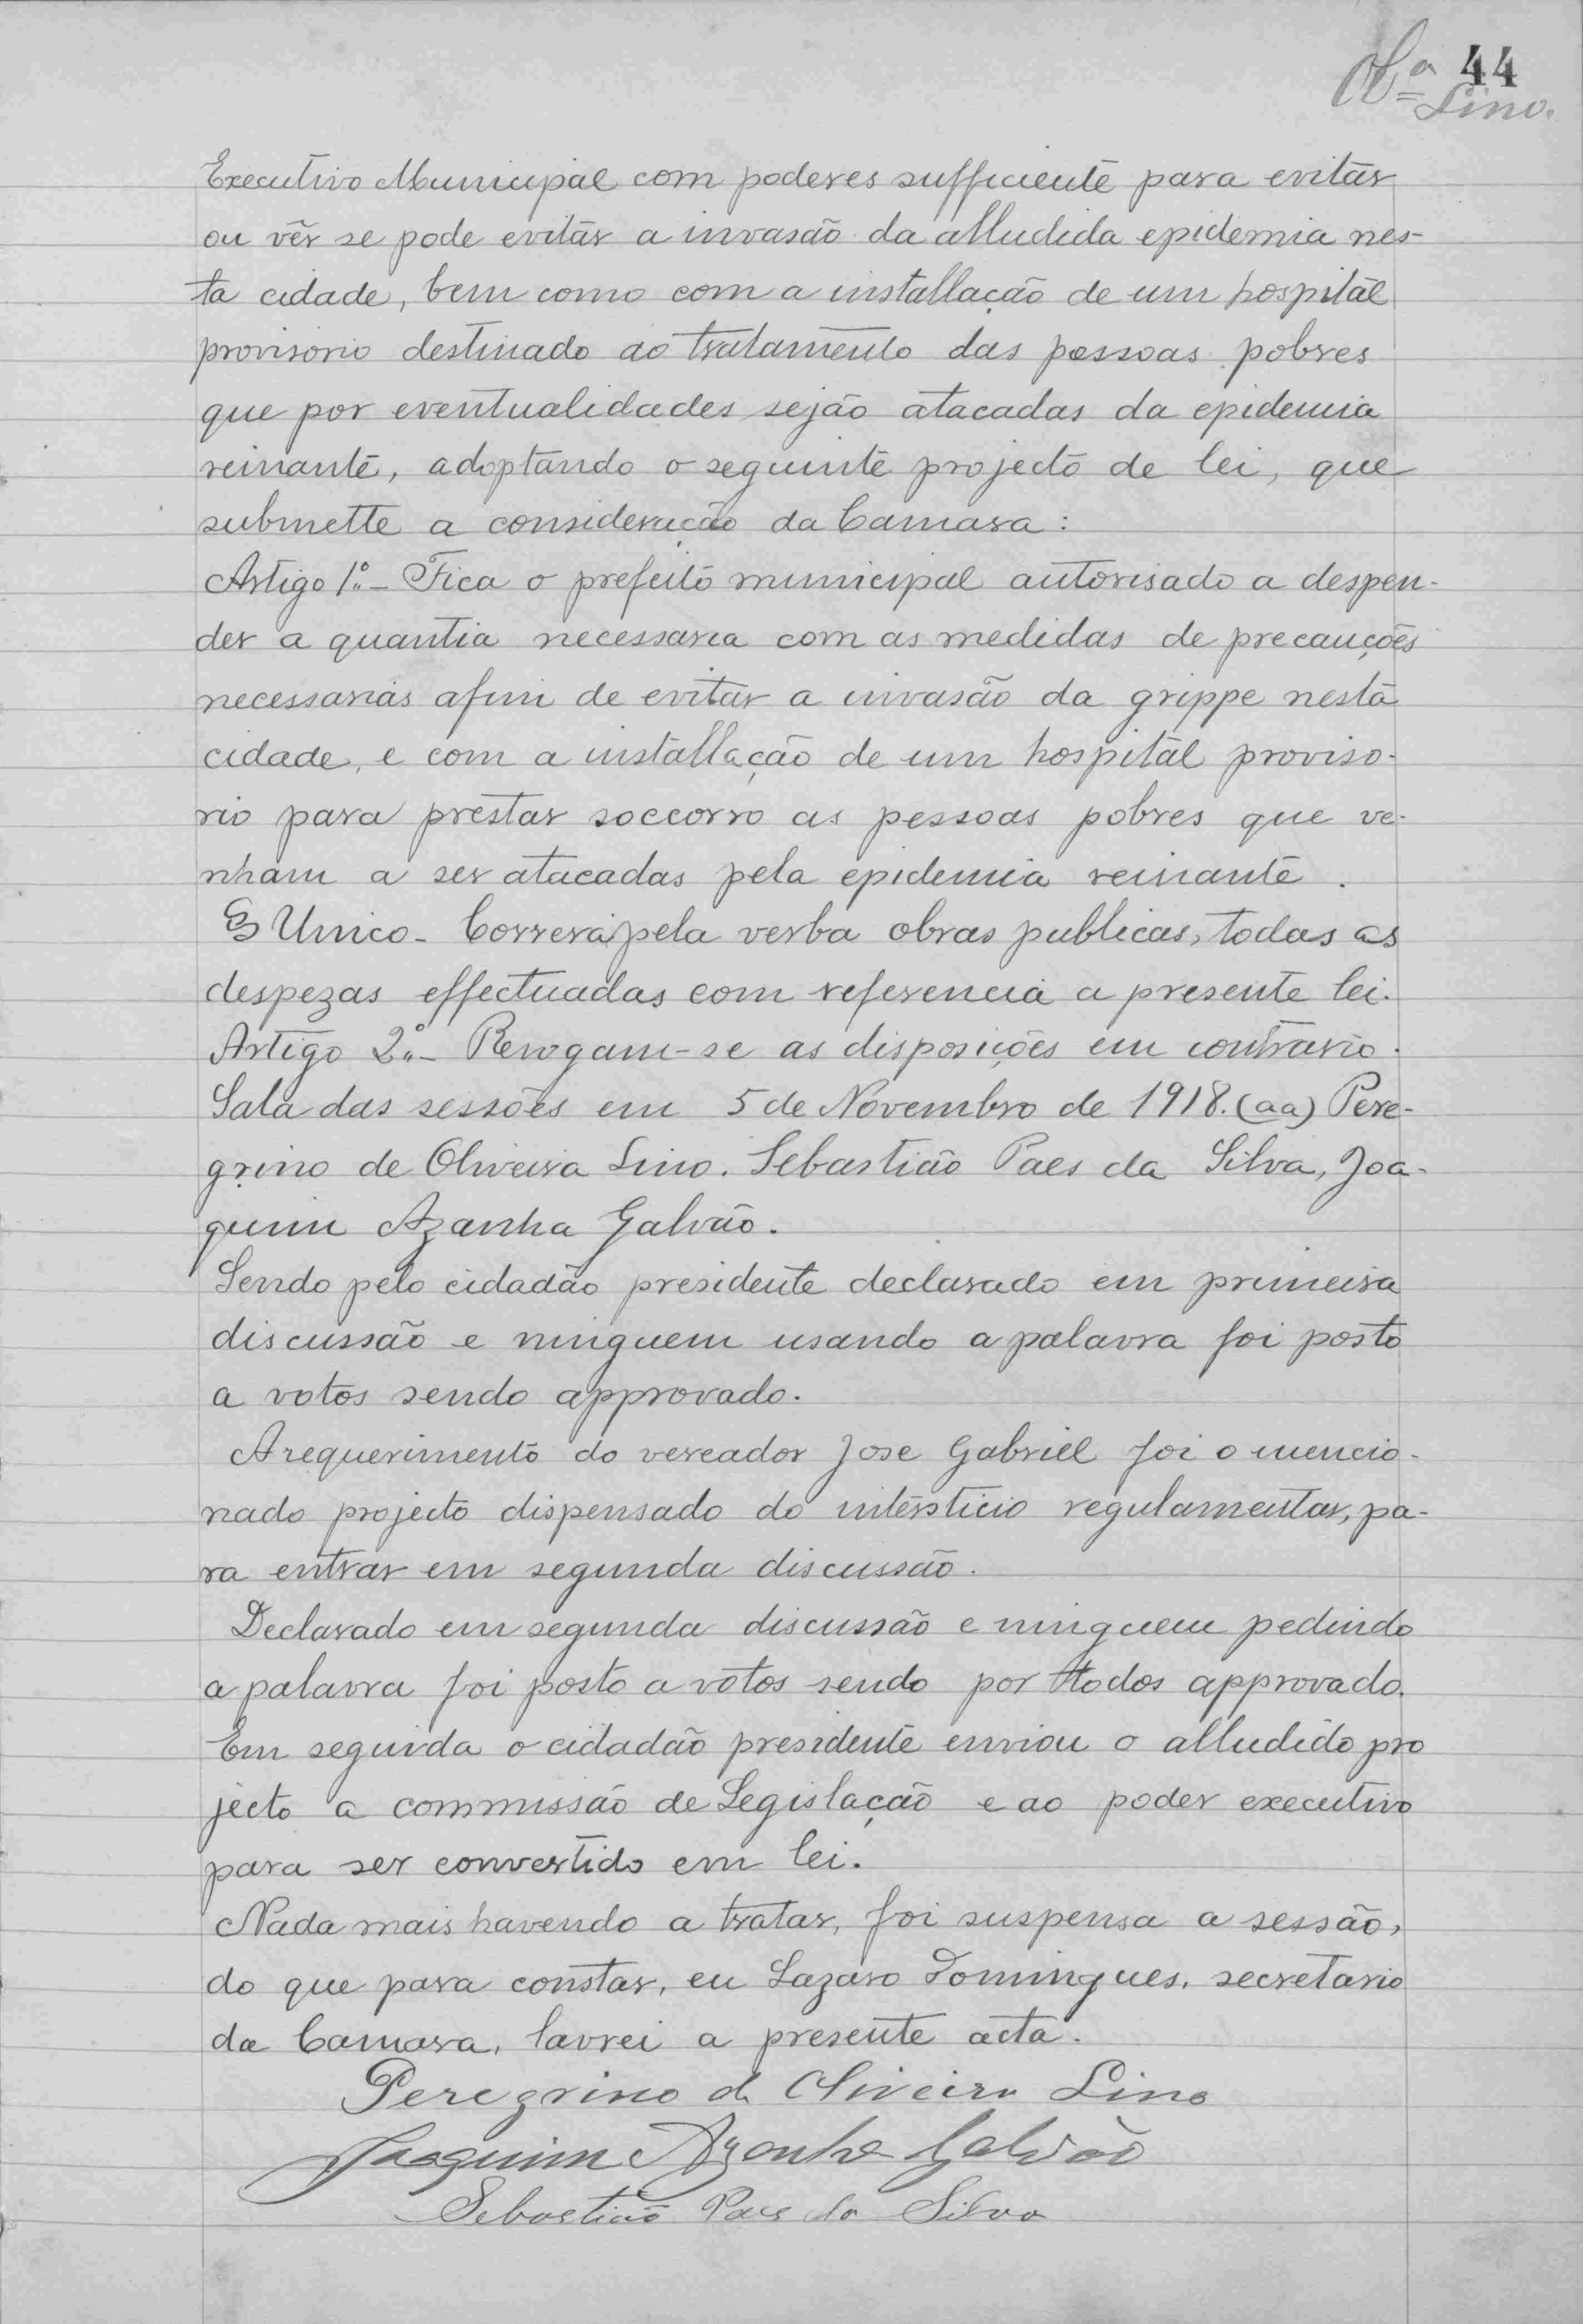 Ol.ª 44
Lino.
Executivo Municipal com poderes sufficiente para evitar
ou vêr se pode evitar a invasão da alludida epidemia nes-
ta cidade, bem como com a installação de um hospital
provisorio destinado ao tratamento das pessoas pobres
que por eventualidades sejão atacadas da epidemia
reinante, adoptando o seguinte projecto de lei, que
submette a consideração da Camara:
Artigo 1º.- Fica o prefeito municipal autorisado a despen-
der a quantia necessaria com as medidas de precauções
necessarias afim de evitar a invasão da grippe nesta
cidade, e com a installação de um hospital proviso-
rio para prestar soccorro as pessoas pobres que ve-
nham a ser atacadas pela epidemia reinante.
§ Unico- Correrá pela verba obras publicas, todas as
despezas effectuadas com referencia a presente lei.
Artigo 2º.- Revogam-se as disposições em contrario.
Sala das sessões em 5 de Novembro de 1918. (aa) Pere-
grino de Oliveira Lino. Sebastião Paes da Silva, Joa-
quim Azanha Galvão.
Sendo pelo cidadão presidente declarado em primeira
discussão e ninguem usando a palavra foi posto
a votos sendo approvado.
A requerimento do vereador Jose Gabriel foi o mencio-
nado projecto dispensado do intersticio regulamentar, pa-
ra entrar em segunda discussão.
Declarado em segunda discussão e ninguem pedindo
a palavra foi posto a votos sendo por todos approvado.
Em seguida o cidadão presidente enviou o alludido pro
jecto a commissão de Legislação e ao poder executivo
para ser convertido em lei.
Nada mais havendo a tratar, foi suspensa a sessão,
do que para constar, eu Lazaro Domingues, secretario
da Camara, lavrei a presente acta.
Peregrino de Oliveira Lino
Joaquim Azanha Galvão
Sebastião Paes da Silva